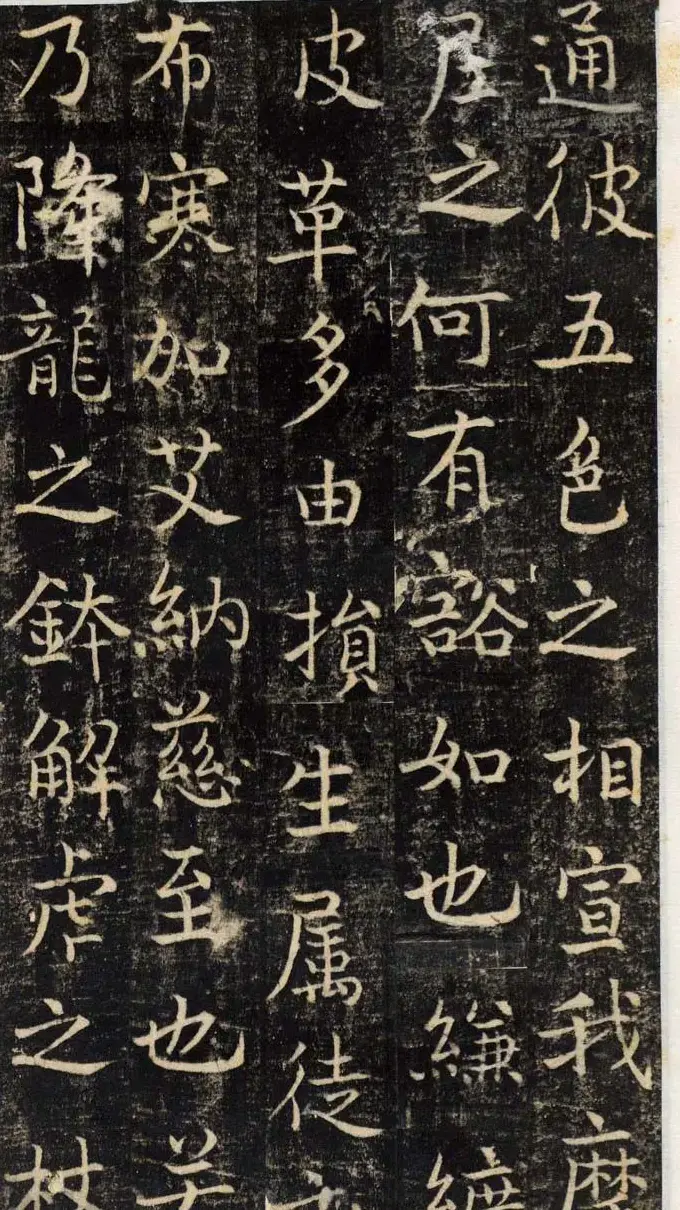 通彼五色之相宣我麻
之何有豁如也縑纊
皮革多由損生属徒
布寒加艾納慈至也若
乃降龍之鉢解虎之杖